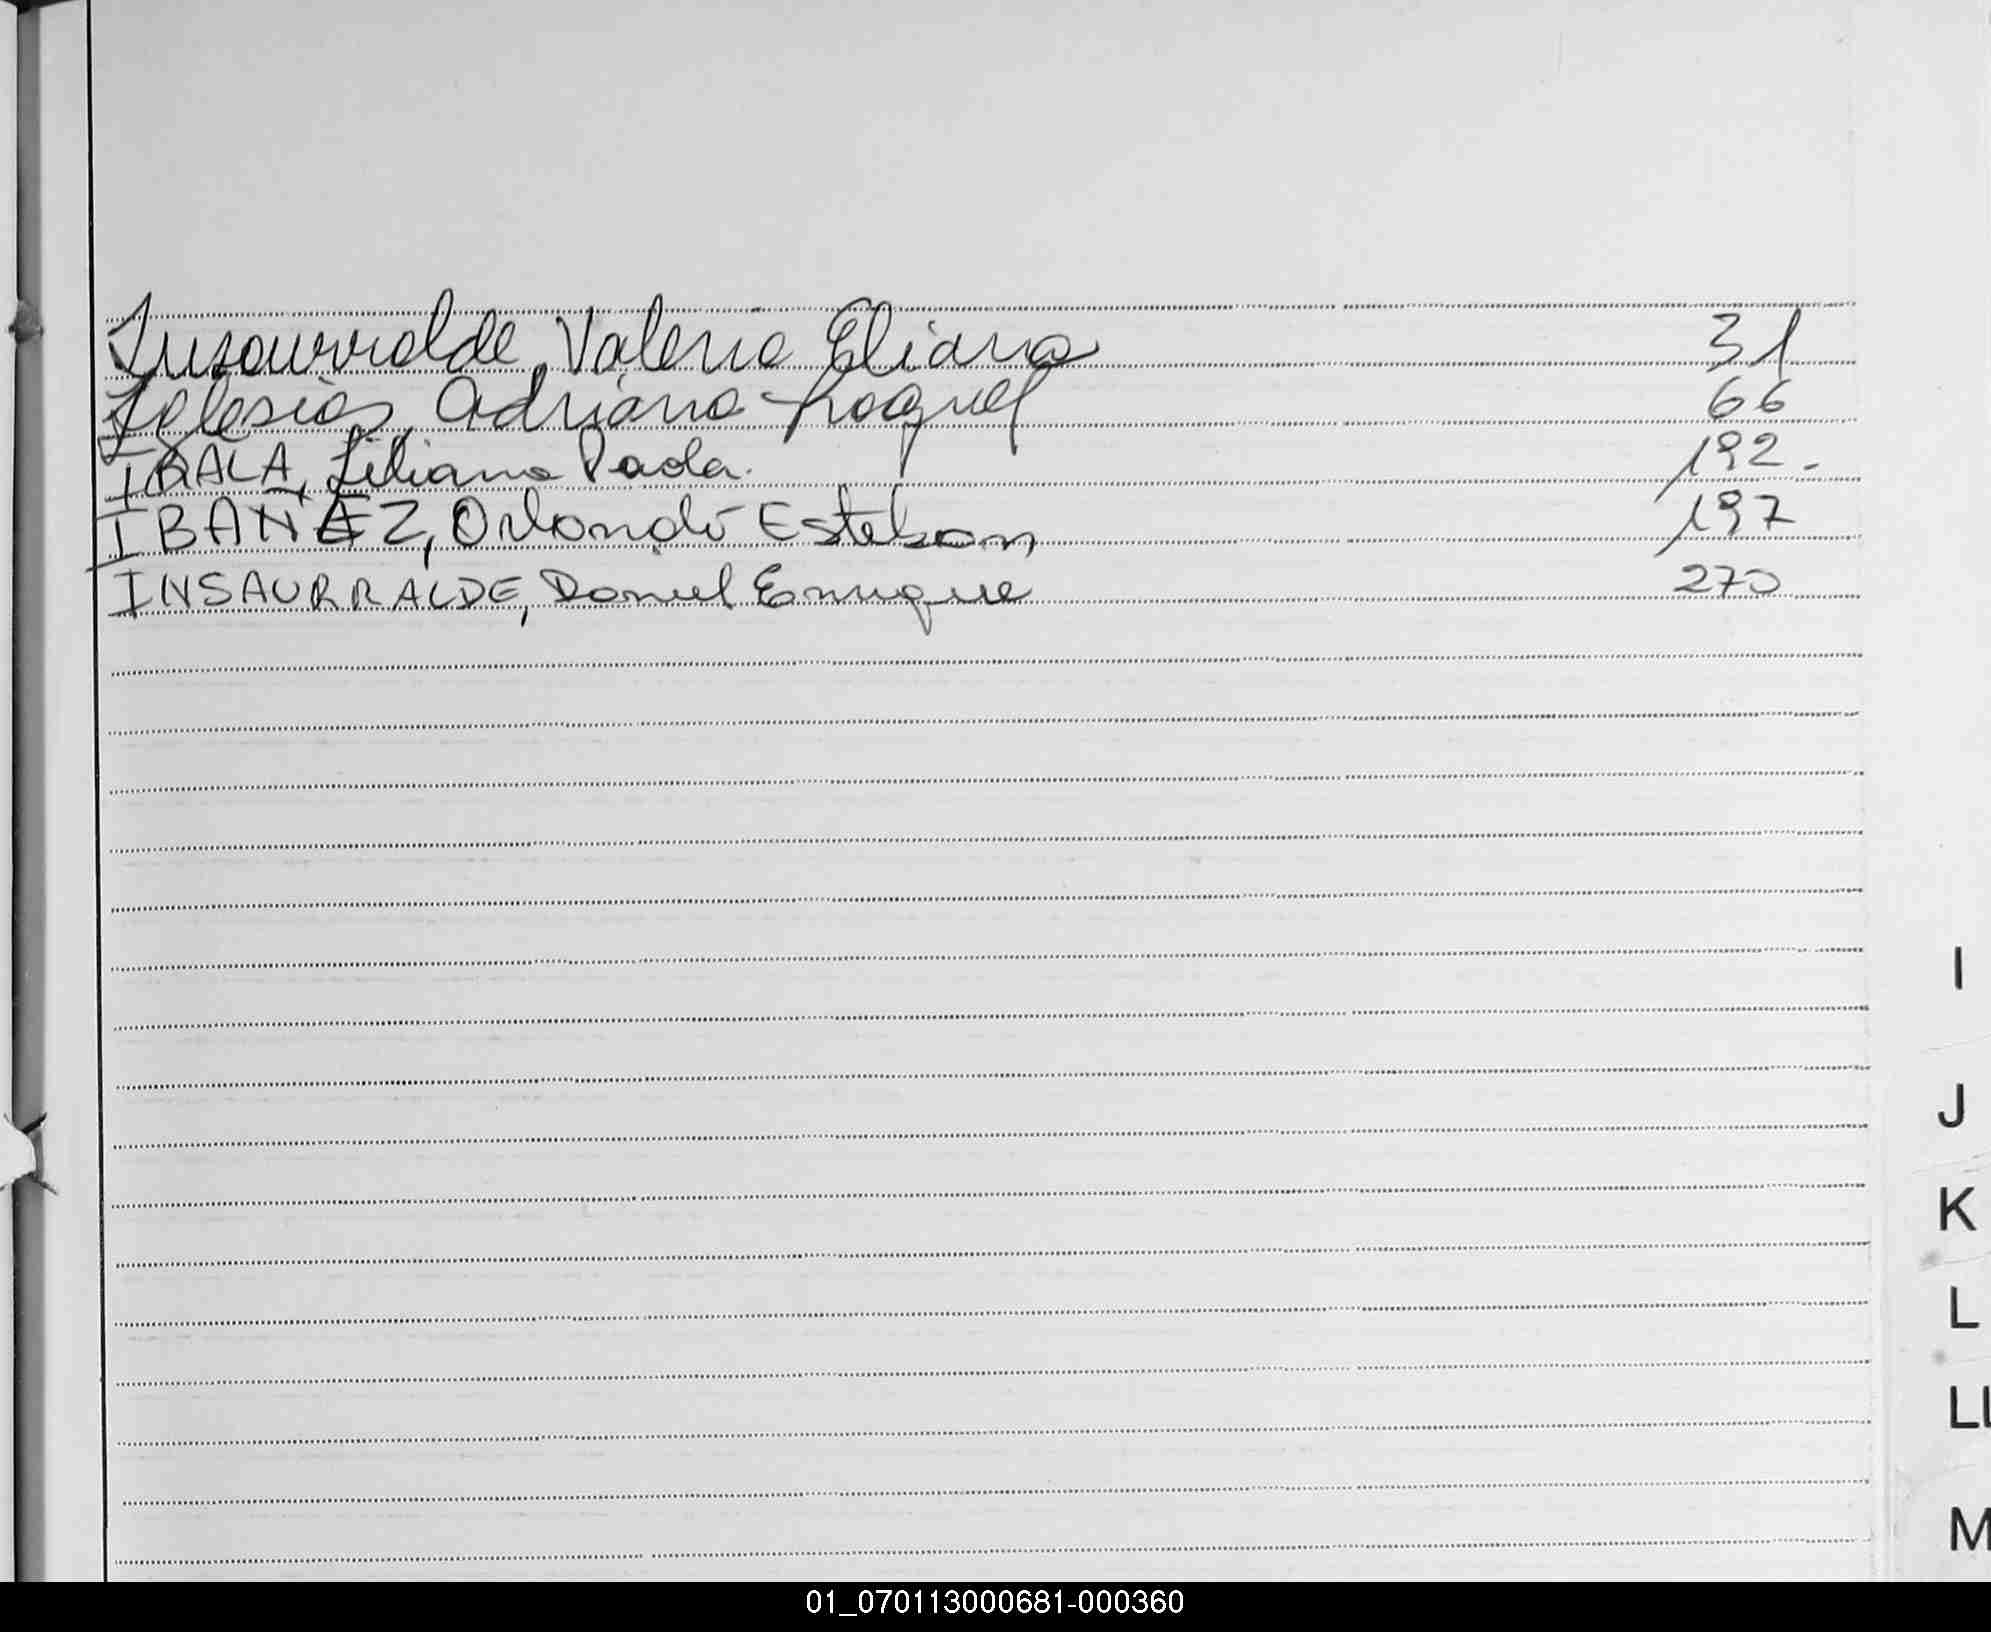 Insaurralde, Valeria Eliana 31
Iglesias, Adriana Raquel 66
IRALA, Liliana Paola. 192.-
IBAÑEZ, Orlando Esteban 197
INSAURRALDE, Daniel Enrique 270
I
J
K
L
LL
M
01_070113000681-000360